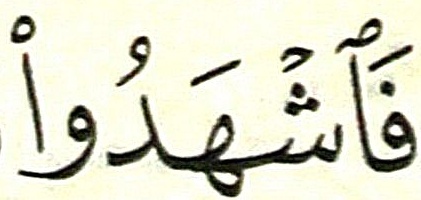 فَٱشْهَدُوا۟